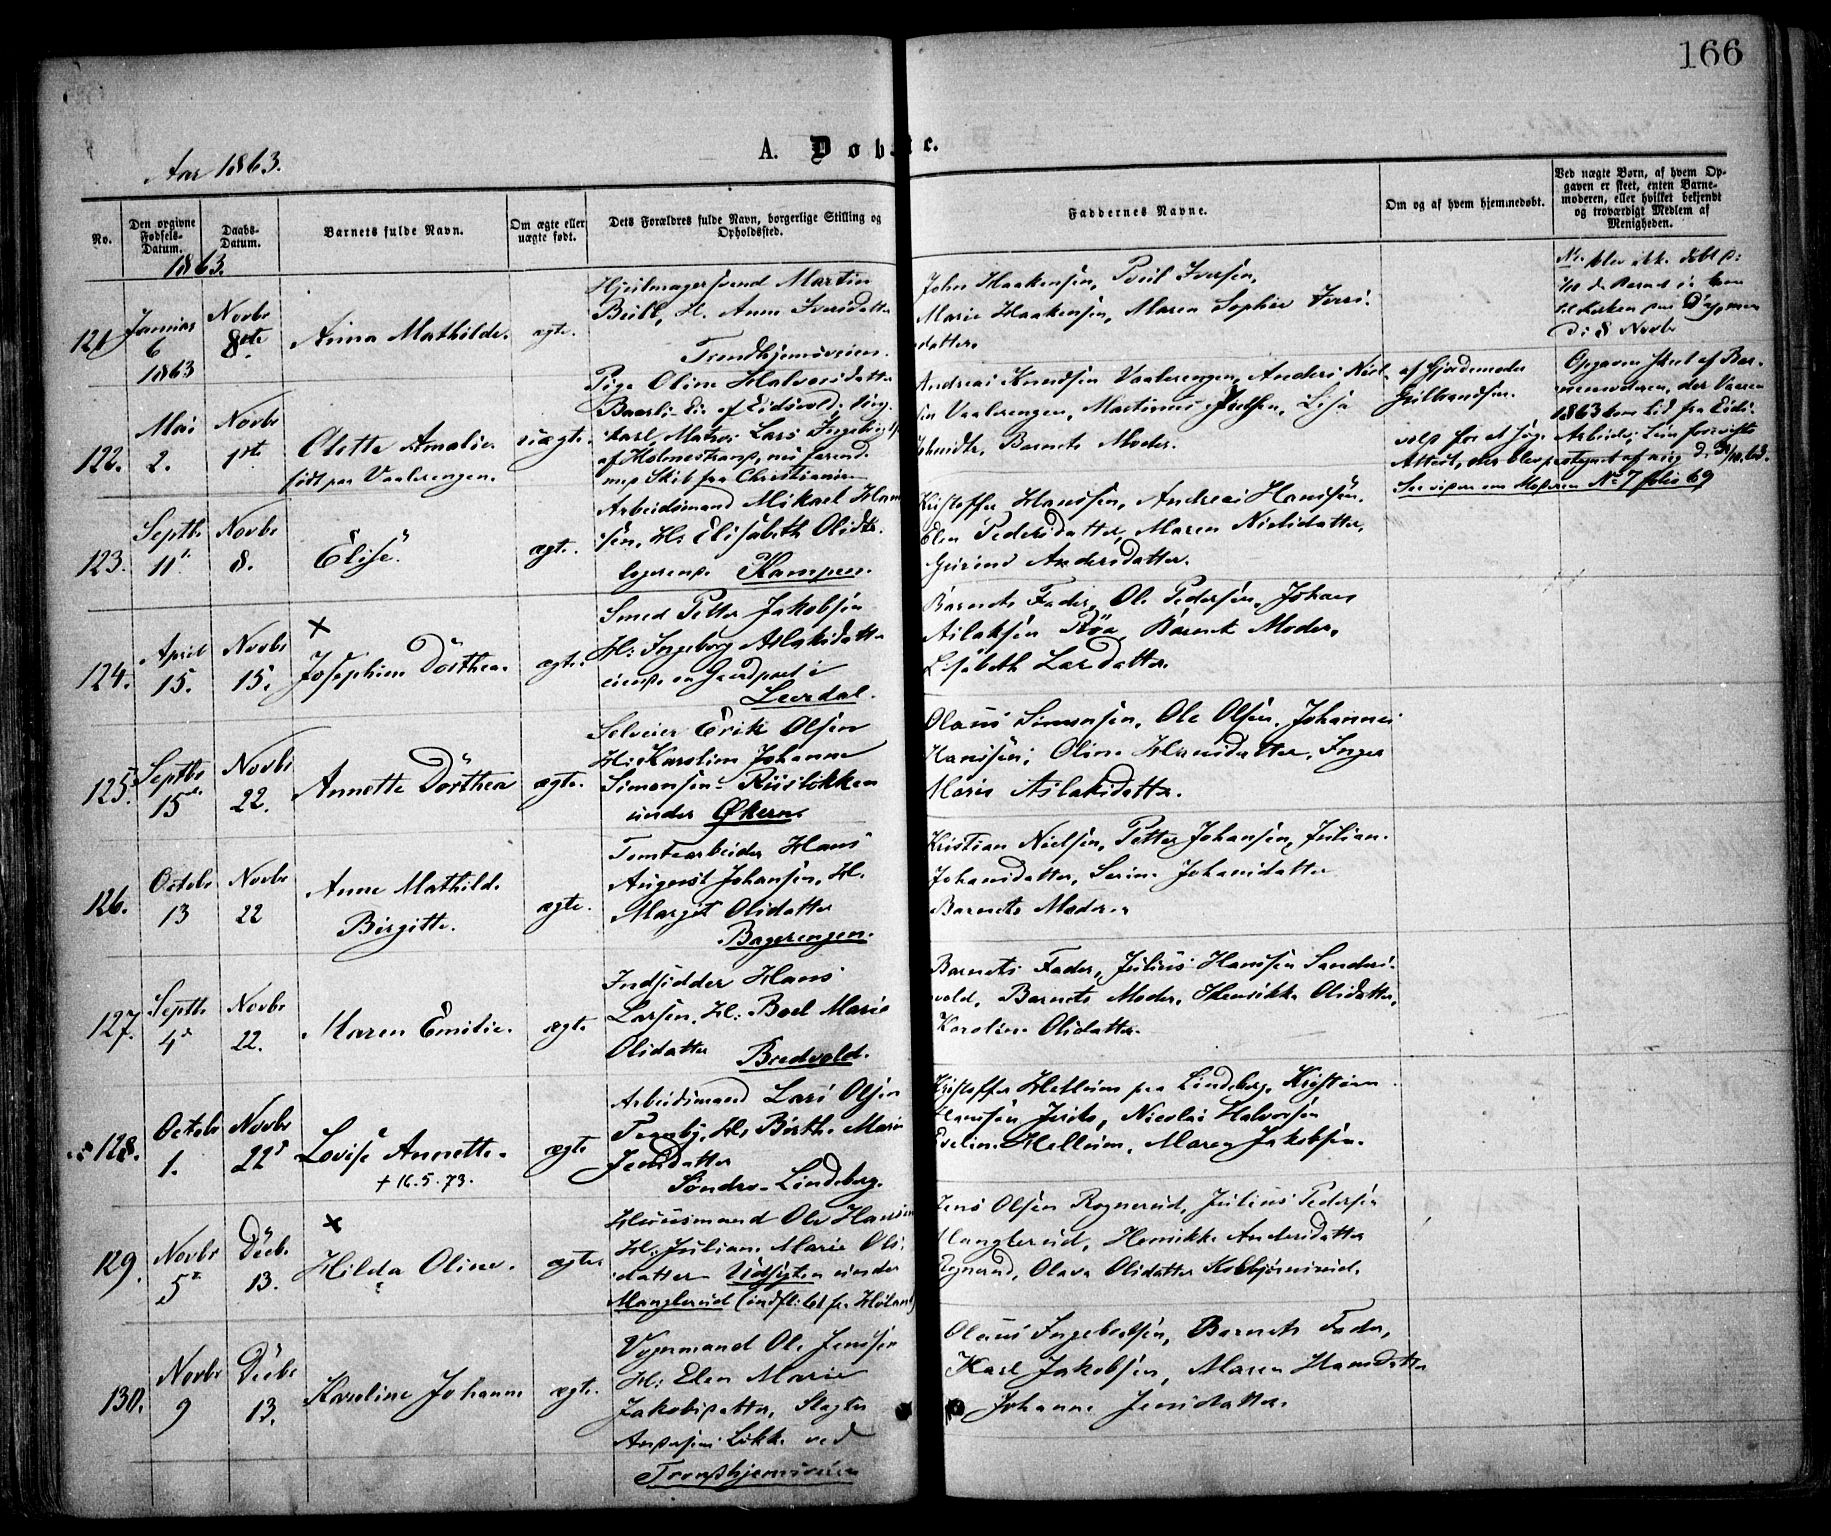 166
A. Døbte.
Aar 1863.
No.
Den opgivne Fødsels-Datum.
Daabs-Datum.
Barnets fulde Navn.
Om ægte eller uægte født.
Dets Forældres fulde Navn, borgerlige Stilling og Opholdssted.
Faddernes Navne.
Om og af hvem hjemmedøbt.
Ved uægte Børn, af hvem Opgaven er skeet, enten Barnemoderen, eller hvilket bekjendt og troværdigt Medlem af Menigheden.
1863.
121
Januar
6
1863
Novbr
8de
Anna Mathilde.
ægte.
Hjulmagersvend Martin
H. Anne Iversdatter
Trondhjemsveien.
John Haakensen, Poul Iversen,
Marie Haakensen, Maren Sophie Iversdatter.
d: 8 Novbr
122.
Mai
2.
Novbr
1ste
Olette Amalie.
født paa Vaalerengen.
uægte.
Pige Oline Halvorsdatter
af Eidsvold
Lars Ingebrigts.
af Holmestrand,
Skib fra Christiania
Andreas Knudsen Vaalerengen, Anders Niel-
sen Vaalerengen, Martinus Lisa
Schmidt, Barnets Moder.
af Gjordemoder
Gulbrandsen.
Opgaven skeet af Bar-
nemoderen, der Vaaren
1863 kom hid fra Eids-
vold for at søge Arbeide;
Attest, der blev paategnet af mig
No 7 folio 69
123.
Septbr
11.
Novbr
8.
Elise
ægte.
Arbeidsmand Mikael Han-
sen, H: Elisabeth Olsdtr.
logerende Kampen.
Kristoffer Hanssen, Andreas Hanssen.
Elen Pedersdatter, Maren Nielsdatter,
Gurine Andersdatter.
124.
April
15.
Novbr
15.
×
Josephine Dorthea.
ægte.
Smed Petter Jakobsen
H: Ingeborg Aslaksdatter
eiende en Gaardpart i
Leirdal.
Barnets Fader, Ole Pedersen, Johans
Aslaksen Röa, Barnets Moder,
Lisabeth Larsdatter.
125.
Septbr
15de
Novbr
22.
Annette Dorthea
ægte.
Selveier Erik Olsen
H: Karoline Johanne
Simonsen. Riisløkken
under Økern.
Olaus Simonsen, Ole Olsen, Johannes
Hanssen, Oline Hansdatter, Inger
Marie Aslaksdatter.
126.
Octobr
13
Novbr
22
Anne Mathilde
Birgitte.
ægte.
Tomtearbeider Hans
August Johansen, H.
Margit Olsdatter
Bagerengen.
Kristian Nielsen, Petter Johansen, Julian
Johansdatter, Serine Johansdatter
Barnets Moder.
127.
Septbr
4de
Novbr
22.
Maren Emilie.
ægte
Indsidder Hans
Larsen, H: Boel Marie
Olsdatter Bredvold.
Barnets Fader, Julius Hanssen Sanders-
vold, Barnets Moder, Henrikke Olsdatter,
Karoline Olsdatter.
128.
Octobr
1.
Novbr
22de
Lovise Annette.
+ 16.5.73.
ægte
Arbeidsmand Lars Olsen
Tornby, H: Birthe Marie
Jensdatter
Søndre Lindeberg.
Kristoffer Hellum paa Lindeberg, Kristian
Hanssen Nicolai Halvorsen
Eveline Hellum, Maren Jakobsen.
129.
Novbr
5te
Decbr
13.
×
Hilda Oline.
ægte
Huusmand Ole Hansen
H: Juliane Marie Ols-
datter Udsigten under
Manglerud (indflyttet fra Høland)
Jens Olsen Rognerud, Julius Pedersen
Manglerud, Henrikke Andersdatter
Rognerud, Olava Olsdatter Kolbjørnsrud.
130.
Novbr
9
Decbr
13.
Karoline Johanne
ægte.
Vognmand Ole Jenssen
H: Elen Marie
Jakobsdatter, Slagter
Andersens Løkke ved
Trondhjemsveien
Olaus Ingebretsen, Barnets Fader,
Karl Jakobsen, Maren Hansdatter
Johanne Jensdatter.